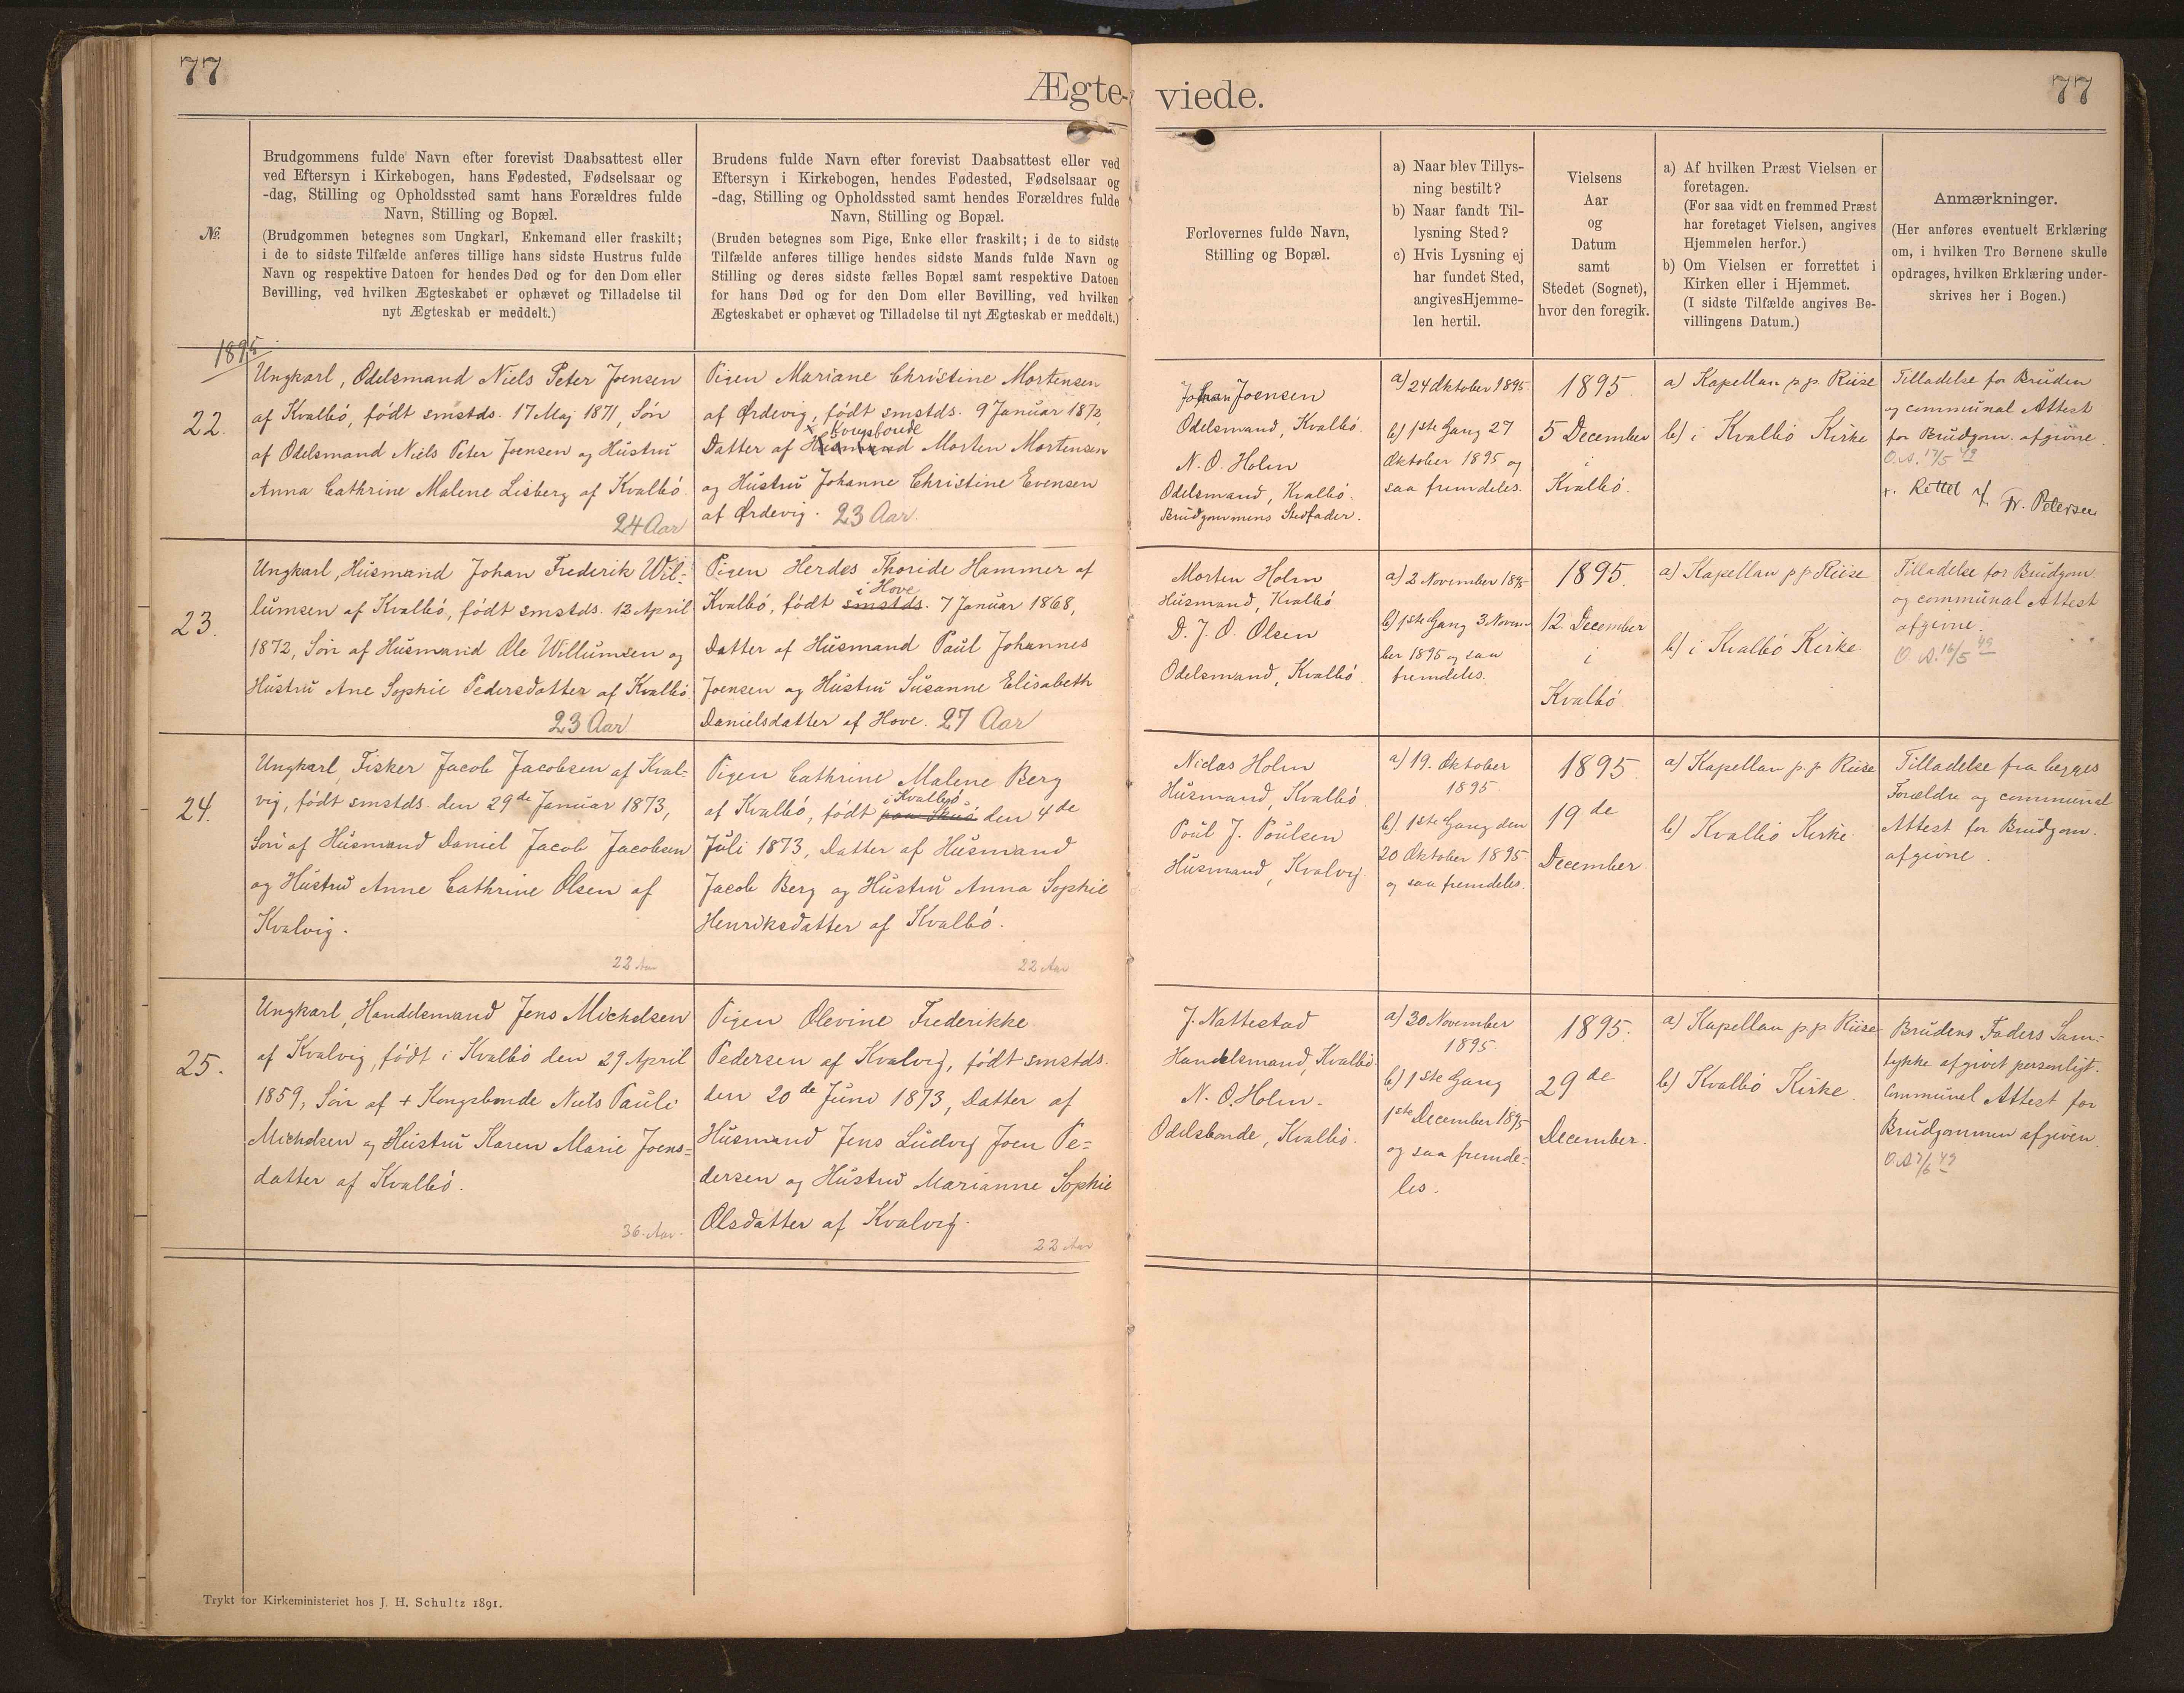 77
Ægte-
Brudgommens fulde Navn efter forevist Daabsattest eller
ved Eftersyn i Kirkebogen, hans Fødested, Fødselsaar og
-dag, Stilling og Opholdssted samt hans Forældres fulde
Navn, Stilling og Bopæl.
(Brudgommen betegnes som Ungkarl, Enkemand eller fraskilt;
i de to sidste Tilfælde anføres tillige hans sidste Hustrus fulde
Navn og respektive Datoen for hendes Død og for den Dom eller
Bevilling, ved hvilken Ægteskabet er ophævet og Tilladelse til
nyt Ægteskab er meddelt.)
Brudens fulde Navn efter forevist Daabsattest eller ved
Eftersyn i Kirkebogen, hendes Fødested, Fødselsaar og
-dag, Stilling og Opholdssted samt hendes Forældres fulde
Navn, Stilling og Bopæl.
(Bruden betegnes som Pige, Enke eller fraskilt; i de to sidste
Tilfælde anføres tillige hendes sidste Mands fulde Navn og
Stilling og deres sidste fælles Bopæl samt respektive Datoen
for hans Død og for den Dom eller Bevilling, ved hvilken
Ægteskabet er ophævet og Tilladelse til nyt Ægteskab er meddelt.)
№.
1895
22.
Ungkarl, Odelsmand Niels Peter Joensen
af Kvalbö, födt smstds. 17 Maj 1871, Sön
af Odelsmand Niels Peter Joensen og Hustru
Anna Cathrine Malene Lisberg af Kvalbö.
24 Aar
Pigen Mariane Christine Mortensen
af Ørdevig, födt smstds. 9 Januar 1872,
x Kongsbonde
Datter af Husmand Morten Mortensen
og Hustru Johanne Christine Evensen
af Ørdevig. 23 Aar.
23.
Ungkarl, Husmand Johan Frederik Wil-
lumsen af Kvalbö, födt smstds. 12 April
1872, Sön af Husmand Ole Willumsen og
Hustru Ane Sophie Pedersdatter af Kvalbö.
23 Aar
Pigen Herdes Thoride Hammer af
i Hove
Kvalbö, födt smstds. 7 Januar 1868,
Datter af Husmand Paul Johannes
Joensen og Hustru Susanne Elisabeth
Danielsdatter af Hove. 27 Aar
24.
Ungkarl, Fisker Jacob Jacobsen af Kval-
vig, födt smstds. den 29de Januar 1873,
Sön af Husmand Daniel Jacob Jacobsen
og Hustru Anne Cathrine Olsen af
Kvalvig.
22 Aar
Pigen Cathrine Malene Berg
i Kvalbö
af Kvalbö, födt paa den 4de
Juli 1873, Datter af Husmand
Jacob Berg og Hustru Anna Sophie
Henriksdatter af Kvalbö.
22 Aar
25.
Ungkarl, Handelsmand Jens Michelsen
af Kvalvig, födt i Kvalbö den 29 April
1859, Sön af + Kongsbonde Niels Pauli
Michelsen og Hustru Karen Marie Joens-
datter af Kvalbö.
36 Aar.
Pigen Olevine Frederikke
Pedersen af Kvalvig, födt smstds.
den 20de Juni 1873, Datter af
Husmand Jens Ludvig Joen Pe-
dersen og Hustru Marianne Sophie
Olsdatter af Kvalvig.
22 Aar
Trykt for Kirkeministeriet hos J. H. Schultz 1891.
viede.
77
Forlovernes fulde Navn,
Stilling og Bopæl.
a) Naar blev Tillys-
ning bestilt?
b) Naar fandt Til-
lysning Sted?
c) Hvis Lysning ej
har fundet Sted,
angives Hjemme-
len hertil.
Vielsens
Aar
og
Datum
samt
Stedet (Sognet),
hvor den foregik.
a) Af hvilken Præst Vielsen er
foretagen.
(For saa vidt en fremmed Præst
har foretaget Vielsen, angives
Hjemmelen herfor.)
b) Om Vielsen er forrettet i
Kirken eller i Hjemmet.
(I sidste Tilfælde angives Be-
villingens Datum.)
Anmærkninger.
(Her anføres eventuelt Erklæring
om, i hvilken Tro Børnene skulle
opdrages, hvilken Erklæring under-
skrives her i Bogen.)
Johan Joensen
Odelsmand, Kvalbö.
N. O. Holm
Odelsmand, Kvalbö.
Brudgommens Stedfader.
a) 24 Oktober 1895
b) 1ste Gang 27
Oktober 1895 og
saa fremdeles.
1895.
5 December
i
Kvalbö.
a) Kapellan p.p. Riise
b) i Kvalbö Kirke
Tilladelse for Bruden
og communal Attest
for Brudgom. afgivne.
O.A. 17/5 49
r. Rettet af Fr. Petersen
Morten Holm
Husmand, Kvalbö
D. J. O. Olsen
Odelsmand, Kvalbö.
a) 2 November 1895
b) 1ste Gang 3 Novem-
ber 1895 og saa
fremdeles.
1895.
12. December
i
Kvalbö.
a) Kapellan p.p. Riise
b) i Kvalbö Kirke
Tilladelse for Brudgom.
og communal Attest
afgivne.
O.A. 16/5 49
Niclas Holm
Husmand, Kvalbö.
Poul J. Poulsen
Husmand, Kvalvig.
a) 19. Oktober
1895.
b) 1ste Gang den
20 Oktober 1895
og saa fremdeles.
1895.
19de
December.
a) Kapellan p.p. Riise
b) Kvalbö Kirke.
Tilladelse fra begges
Forældre og communal
Attest for Brudgom.
afgivne.
J. Nattestad
Handelsmand, Kvalbö.
N. O. Holm.
Odelsbonde, Kvalbö.
a) 30. November
1895.
b) 1ste Gang
1ste December 1895
og saa fremde-
les.
1895.
29de
December.
a) Kapellan p.p. Riise
b) Kvalbö Kirke.
Brudens Faders Sam-
tykke afgivet personligt.
Communal Attest for
Brudgommen afgiven.
O.A. 7/6 49